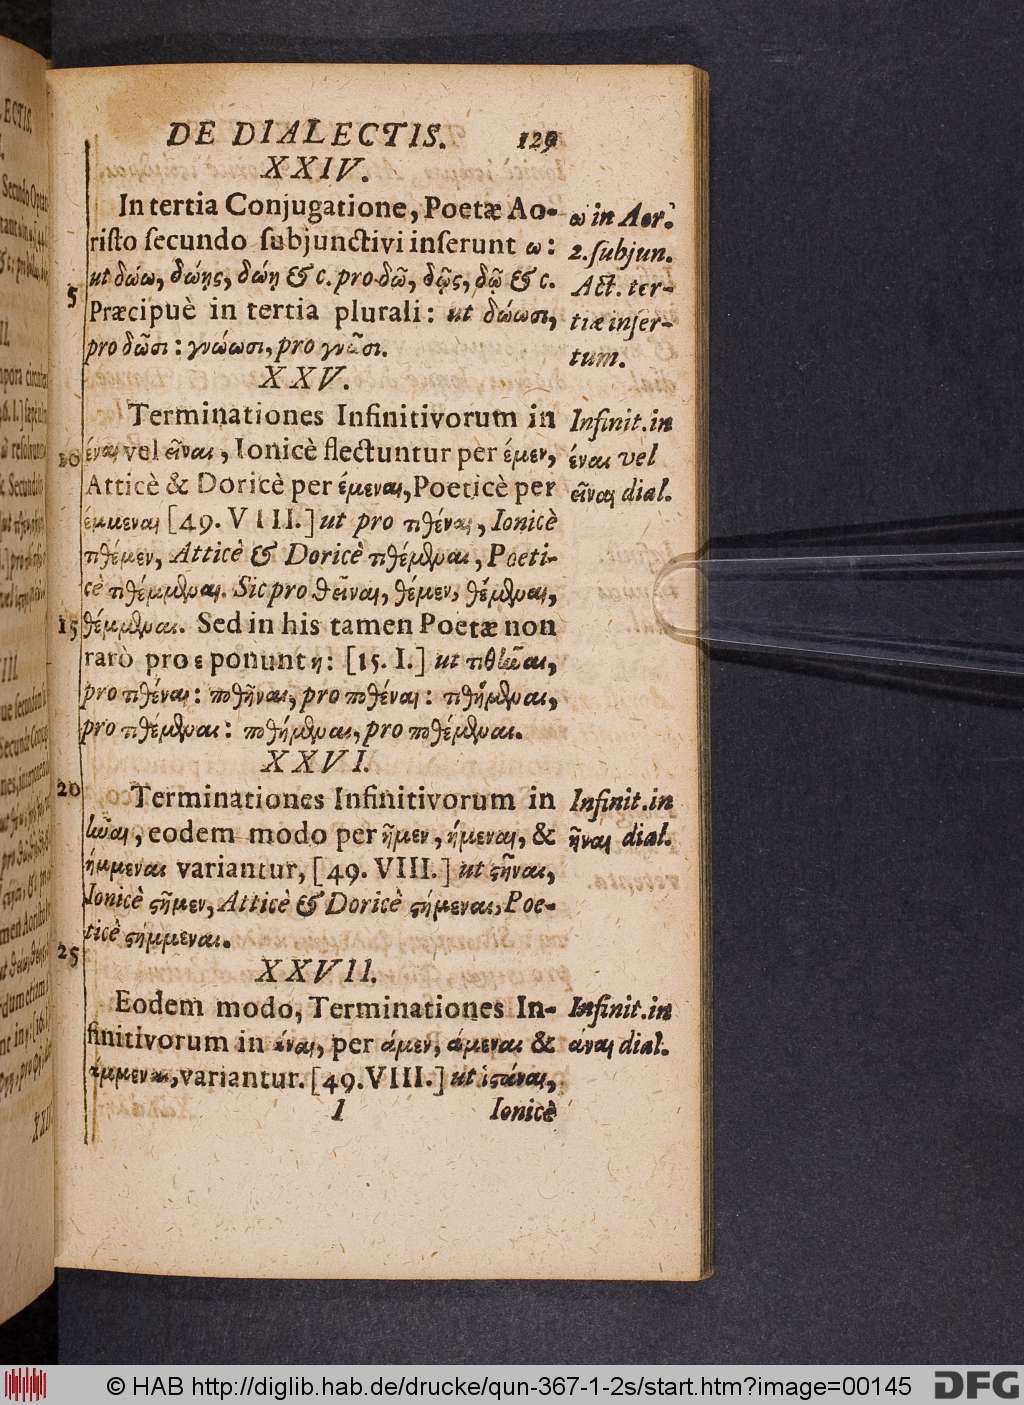 DE DIALECTIS. 129
XXIV.
In tertia Conjugatione, Poetæ Ao-
risto secundo subjunctivi inserunt ω:
ut δώω, δώης, δώη & c. pro δῶ, δῷς, δῷ & c.
5
Præcipuè in tertia plurali: ut δώωσι,
pro δῶσι: γνώωσι, pro γνῶσι.
ω in Aor.
2. subjun.
Act. ter-
tiæ inser-
tum.
XXV.
Terminationes Infinitivorum in
10 έναι vel εῖναι, Ionicè flectuntur per έμεν,
Atticè & Doricè per έμεναι, Poeticè per
έμμεναι [49. VIII.] ut pro τιθέναι, Ionicè
τιθέμεν, Atticè & Doricè τιθέμεναι, Poeti-
cè τιθέμμεναι. Sic pro θεῖναι, θέμεν, θέμεναι,
15 θέμμεναι. Sed in his tamen Poetæ non
rarò pro ε ponunt η: [15. I.] ut τιθῆναι,
pro τιθέναι: ποθῆναι, pro ποθέναι: τιθήμεναι,
pro τιθέμεναι: ποθήμεναι, pro ποθέμεναι.
Infinit. in
έναι vel
εῖναι dial.
XXVI.
20 Terminationes Infinitivorum in
ῆναι, eodem modo per ῆμεν, ήμεναι, &
ήμμεναι variantur, [49. VIII.] ut ςῆναι,
Ionicè ςῆμεν, Atticè & Doricè ςήμεναι, Poe-
ticè ςήμμεναι.
25
Infinit. in
ῆναι dial.
XXVII.
Eodem modo, Terminationes In-
finitivorum in άναι, per άμεν, άμεναι &
άμμεναι, variantur. [49. VIII.] ut ἱςάναι,
Infinit. in
άναι dial.
I Ionicè
© HAB http://diglib.hab.de/drucke/qun-367-1-2s/start.htm?image=00145 DFG